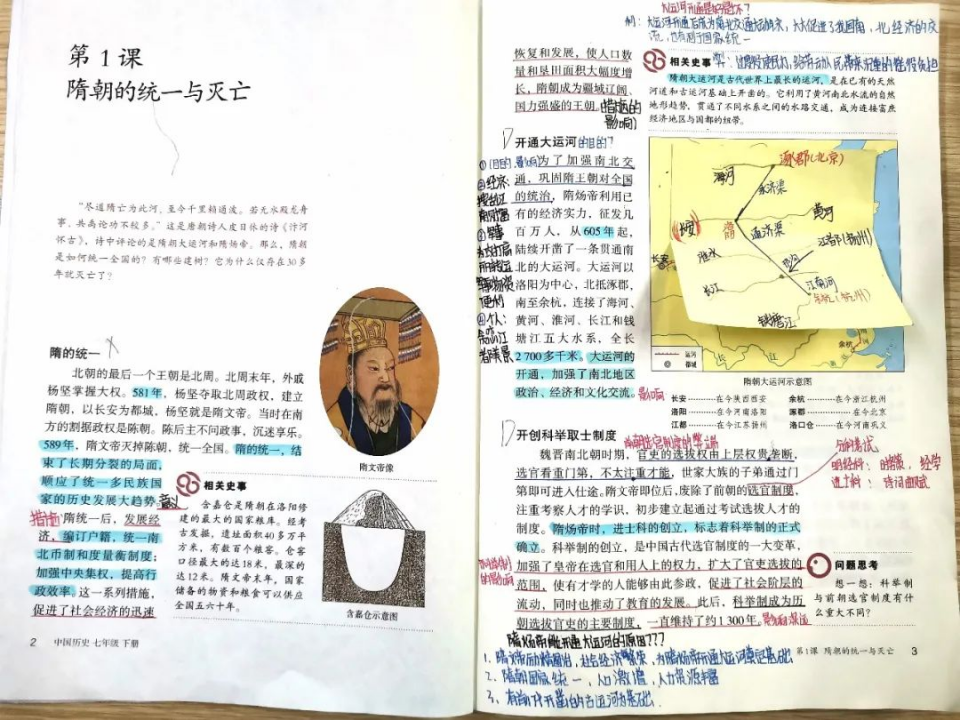 第1课
隋朝的统一与灭亡
“尽道隋亡为此河，至今千里赖通波。若无水殿龙舟
事，共禹论功不较多。”这是唐朝诗人皮日休的诗《汴河
怀古》，诗中评论的是隋朝大运河和隋炀帝。那么，隋朝
是如何统一全国的？有哪些建树？它为什么仅存在30多
年就灭亡了？
隋的统一
北朝的最后一个王朝是北周。北周末年，外戚
杨坚掌握大权。581年，杨坚夺取北周政权，建立
隋朝，以长安为都城，杨坚就是隋文帝。当时在南
方的割据政权是陈朝。陈后主不问政事，沉迷享乐。
589年，隋文帝灭掉陈朝，统一全国。隋的统一，结
束了长期分裂的局面，
顺应了统一多民族国
家的历史发展大趋势。
意义
措施
隋统一后，发展经
济，编订户籍，统一南
北币制和度量衡制度；
加强中央集权，提高行
政效率。这一系列措施，
促进了社会经济的迅速
隋文帝像
相关史事
含嘉仓是隋朝在洛阳修
建的最大的国家粮库。经考
古发掘，遗址面积40多万平
方米，有数百个粮窖。仓窖
口径最大的达18米，最深的
达12米。隋文帝末年，国家
储备的物资和粮食可以供应
全国五六十年。
含嘉仓示意图
2 中国历史 七年级 下册
利：大运河开通后成为南北交通大动脉，大大促进了我国南，北经济的交
流，也有利于国家统一
恢复和发展，使人口数
量和垦田面积大幅度增
长，隋朝成为疆域辽阔、
国力强盛的王朝。
(措施的
影响)
相关史事
隋朝大运河是古代世界上最长的运河，是在已有的天然
河道和古运河基础上开凿的。它利用了黄河南北水流的自然
地形趋势，贯通了不同水系之间的水路交通，成为连接富庶
经济地区与国都的纽带。
开通大运河
的目的？
为了加强南北交
通，巩固隋王朝对全国
的统治，隋炀帝利用已
有的经济实力，征发几
百万人，从605年起，
陆续开凿了一条贯通南
北的大运河。大运河以
洛阳为中心，北抵涿郡，
南至余杭，连接了海河、
黄河、淮河、长江和钱
塘江五大水系，全长
2 700多千米。大运河的
开通，加强了南北地区
政治、经济和文化交流。
影响
涿郡(北京)
海河
永济渠
黄河
长安
通济渠
江都(扬州)
淮水
邗沟
长江
江南河
余杭(杭州)
钱塘江
长安
余杭
隋朝大运河示意图
长安…………在今陕西西安
余杭…………在今浙江杭州
洛阳…………在今河南洛阳
涿郡…………在今北京
江都…………在今江苏扬州
洛口仓………在今河南巩义
开创科举取士制度
魏晋南北朝时期，官吏的选拔权由上层权贵垄断，
选官看重门第，不太注重才能，世家大族的子弟通过门
第即可进入仕途。隋文帝即位后，废除了前朝的选官制度，
注重考察人才的学识，初步建立起通过考试选拔人才的
制度。隋炀帝时，进士科的创立，标志着科举制的正式
确立。科举制的创立，是中国古代选官制度的一大变革，
加强了皇帝在选官和用人上的权力，扩大了官吏选拔的
范围，使有才学的人能够由此参政，促进了社会阶层的
流动，同时也推动了教育的发展。此后，科举制成为历
朝选拔官吏的主要制度，一直维持了约1 300年。
分科考试
明经科：时务策，经学
进士科：诗词曲赋
问题思考
想一想：科举制
与前朝选官制度有什
么重大不同？
隋炀帝能开通大运河的原因???
1、隋文帝励精图治，社会经济繁荣，为隋炀帝开通大运河奠定基础
2、隋朝国家统一，人口激增，人力资源丰富
3、有前代开凿的古运河为基础.
第1课 隋朝的统一与灭亡 3